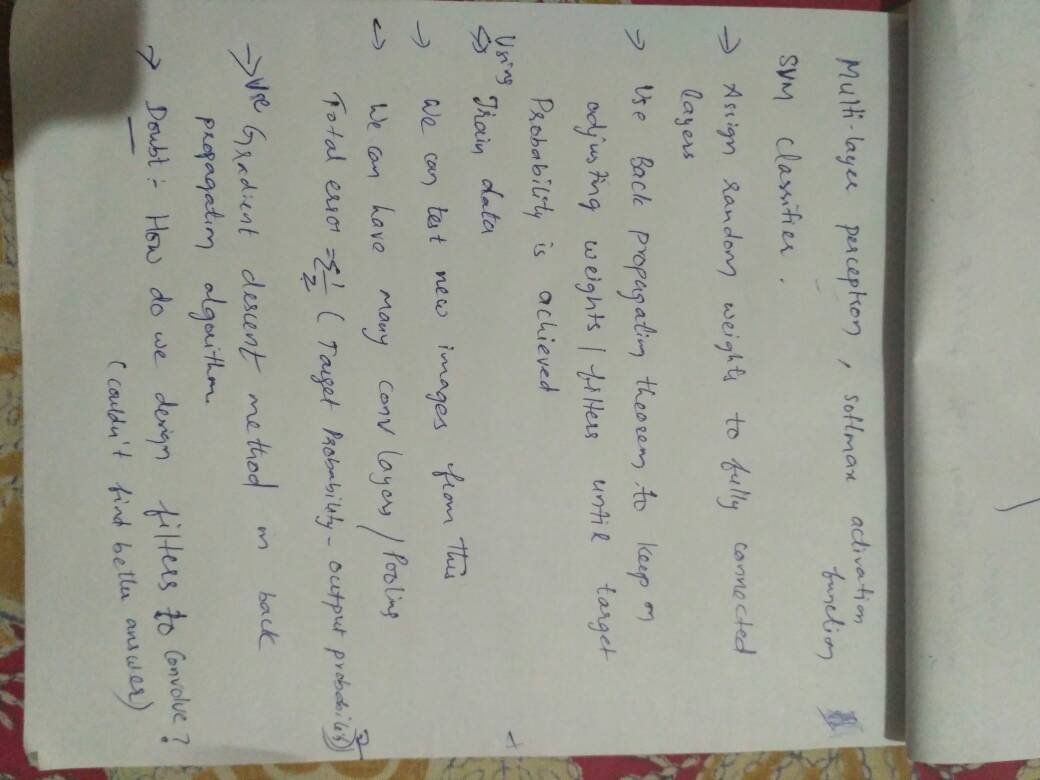 Multi-layer perceptron, softmax activation
function
SVM classifier.
→ Assign random weights to fully connected
layers
→ Use Back propagation theorem to keep on
adjusting weights / filters until target
Probability is achieved
Using
↔ Train data
→ We can test new images from this
↔ We can have many conv layers / Pooling
Total error = Σ 1/2 (Target Probability - output probability)²
→ Use Gradient descent method in back
propagation algorithm.
→ Doubt :- How do we design filters to convolve?
(couldn't find better answer)